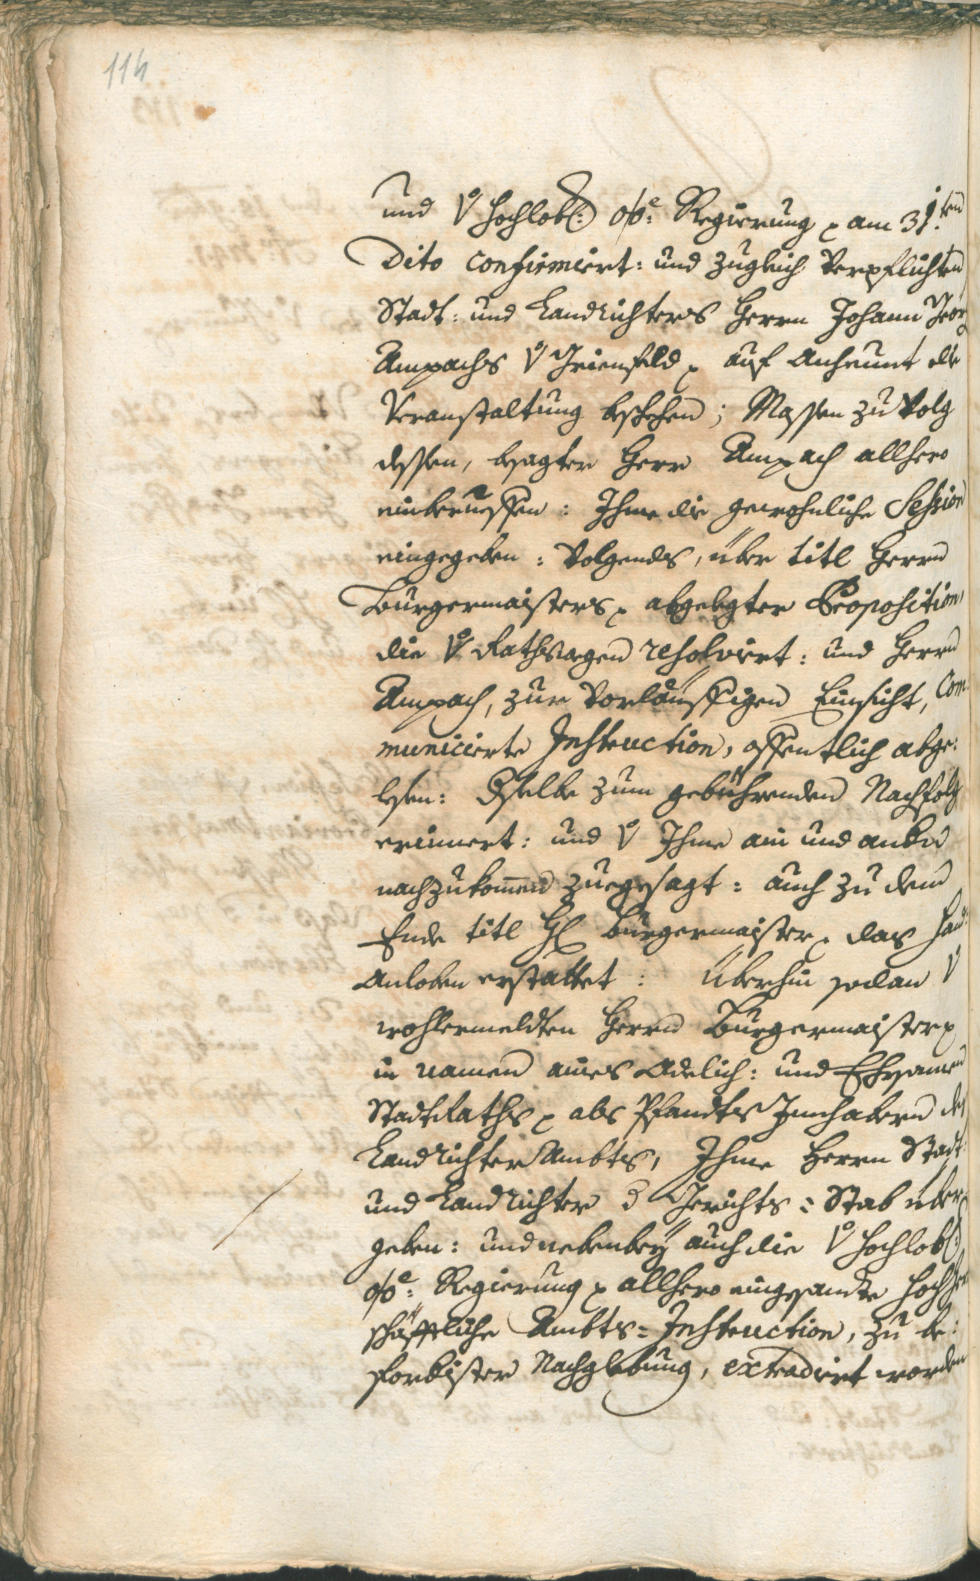 114
und V Hochlobl: oö: Regierung am 31.ten
Dito confirmiert: und zugleich verpflichten
Stadt: und Landrichters Herrn Johann Geor
Ampachs V Grienfeld, auf Anheunt die
Veranstaltung beschehen; Massen zu Volg
dessen, besagter Herr Ampach allhero
einberueffen: Ihme die gewohnliche Session
eingegeben: Volgends, über titl Herrn
Burgermaisters abgelegter Proposition,
die V Rathswegen resolviert: und Herrn
Ampach, zur vorläuffigen Einsicht, Com
municierte Instruction, offentlich abge:
lesen: Dselbe zum gebührenden Nachfolg
erinnert: und V Ihme ain und anders
nachzukommen zuegesagt: auch zu dem
Ende titl H Burgermaister das Hand
Anloben erstattet: Überhin sodan V
wohlermeldten Herrn Burgermaister
in namen aines Adelich: und Ehrsamen
StadtRaths als Pfandts Innhabern des
LandrichterAmbts, Ihme Herrn Stadt
und Landrichter d Gerichts: Stab über
geben: und nebenbey auch die V Hochlobl:
oö: Regierung allhero eingesandte Hochher
schäfftliche Ambts=Instruction, zu be:
sorbister Nachglebung, extradirt worden